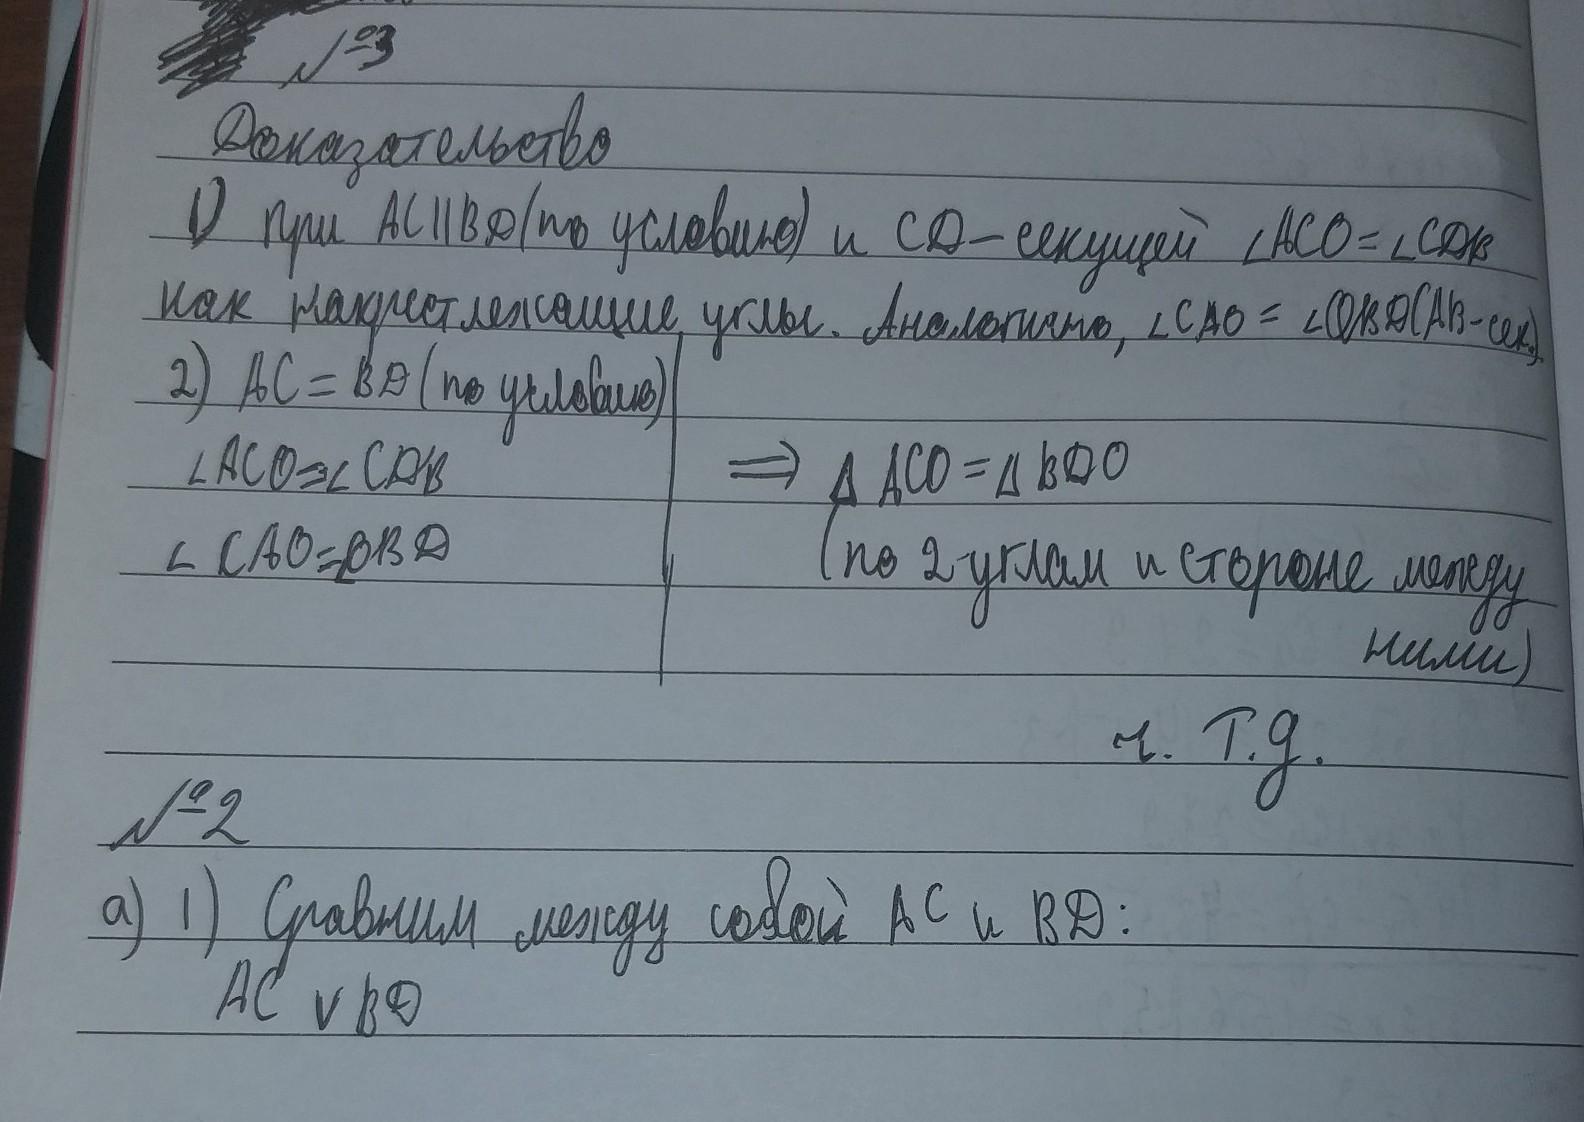 №3
Доказательство
1) при AC||BD (по условию) и CD – секущей ∠ACO = ∠CDB
как накрест лежащие углы. Аналогично, ∠CAO = ∠OBD (AB – сек.)
2) AC = BD (по условию)
∠ACO = ∠CDB
⇒ Δ ACO = Δ BDO
∠CAO = OBD
(по 2 углам и стороне между
ними)
ч. т.д.
№2
а) 1) Сравним между собой AC и BD:
AC ∨ BD